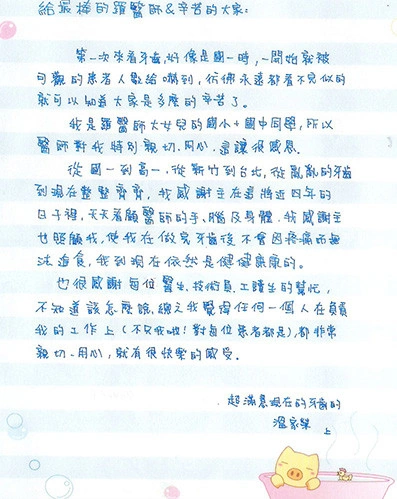 給最棒的羅醫師&辛苦的大家:
第一次來看牙齒,好像是國一時,一開始就被
可觀的患者人數給嚇到,彷彿永遠都看不完似的
就可以知道大家是多麼的辛苦了。
我是羅醫師大女兒的國小+國中同學,所以
醫師對我特別親切、用心,這讓很感恩。
從國一到高一,從新竹到台北,從亂亂的牙齒
到現在整整齊齊,我感謝主在這將近四年的
日子裡,天天看顧醫師的手、腦及身體,我感謝主
也照顧我,使我在做完牙齒後不會因疼痛而無
法進食,我到現在依然是健健康康的。
也很感謝每位醫生、技術員、工讀生的幫忙,
不知道該怎麼說,總之我覺得任何一個人在負責
我的工作上(不只我啦!對每位患者都是),都非常
親切、用心,就有很快樂的感受。
超滿意現在的牙齒的
溫家
上